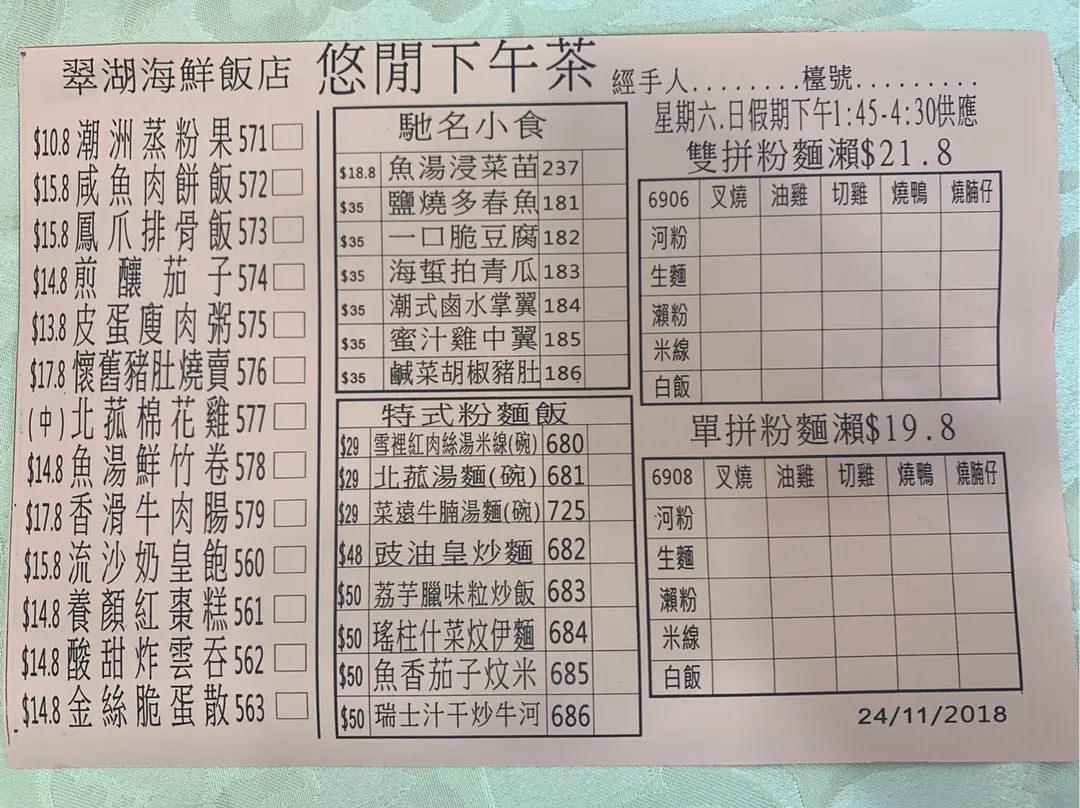 翠湖海鮮飯店 悠閒下午茶 經手人........檯號..........
$10.8 潮洲蒸粉果 571
$15.8 咸魚肉餅飯 572
$15.8 鳳爪排骨飯 573
$14.8 煎釀茄子 574
$13.8 皮蛋廋肉粥 575
$17.8 懷舊豬肚燒賣 576
(中) 北菰棉花雞 577
$14.8 魚湯鮮竹卷 578
$17.8 香滑牛肉腸 579
$15.8 流沙奶皇飽 560
$14.8 養顏紅棗糕 561
$14.8 酸甜炸雲吞 562
$14.8 金絲脆蛋散 563
馳名小食
$18.8 魚湯浸菜苗 237
$35 鹽燒多春魚 181
$35 一口脆豆腐 182
$35 海蜇拍青瓜 183
$35 潮式鹵水掌翼 184
$35 蜜汁雞中翼 185
$35 鹹菜胡椒豬肚 186
特式粉麵飯
$29 雪裡紅肉絲湯米線(碗) 680
$29 北菰湯麵(碗) 681
$29 菜遠牛腩湯麵(碗) 725
$48 豉油皇炒麵 682
$50 荔芋臘味粒炒飯 683
$50 瑤柱什菜炆伊麵 684
$50 魚香茄子炆米 685
$50 瑞士汁干炒牛河 686
星期六.日假期下午1:45-4:30供應
雙拼粉麵瀨$21.8
6906 叉燒 油雞 切雞 燒鴨 燒腩仔
河粉
生麵
瀨粉
米線
白飯
單拼粉麵瀨$19.8
6908 叉燒 油雞 切雞 燒鴨 燒腩仔
河粉
生麵
瀨粉
米線
白飯
24/11/2018